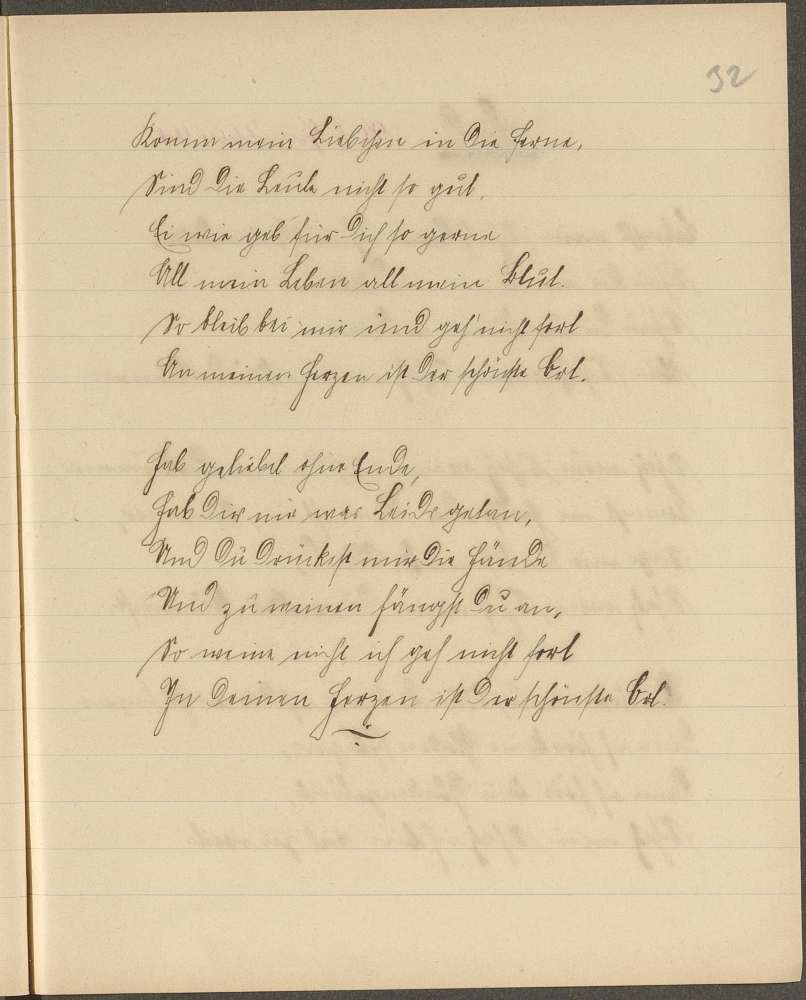 32
Komm mein Liebchen in die Ferne,
Sind die Leute nicht so gut,
Ei wie geb' für Dich so gerne
All mein Leben all mein Blut.
So bleib bei mir und geh' nicht fort
An meinen Herzen ist der schönste Ort.
Hab geliebet ohne Ende,
Hab Dir nie was Leids getan,
Und Du drückst mir die Hände
Und zu weinen fängst Du an,
So weine nicht ich geh nicht fort
In Deinen Herzen ist der schönste Ort.